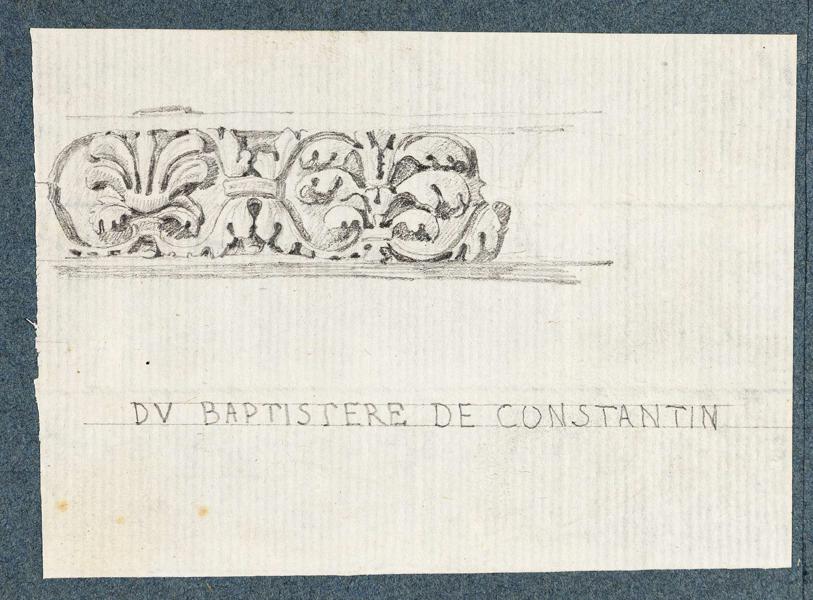 DV BAPTISTERE DE CONSTANTIN